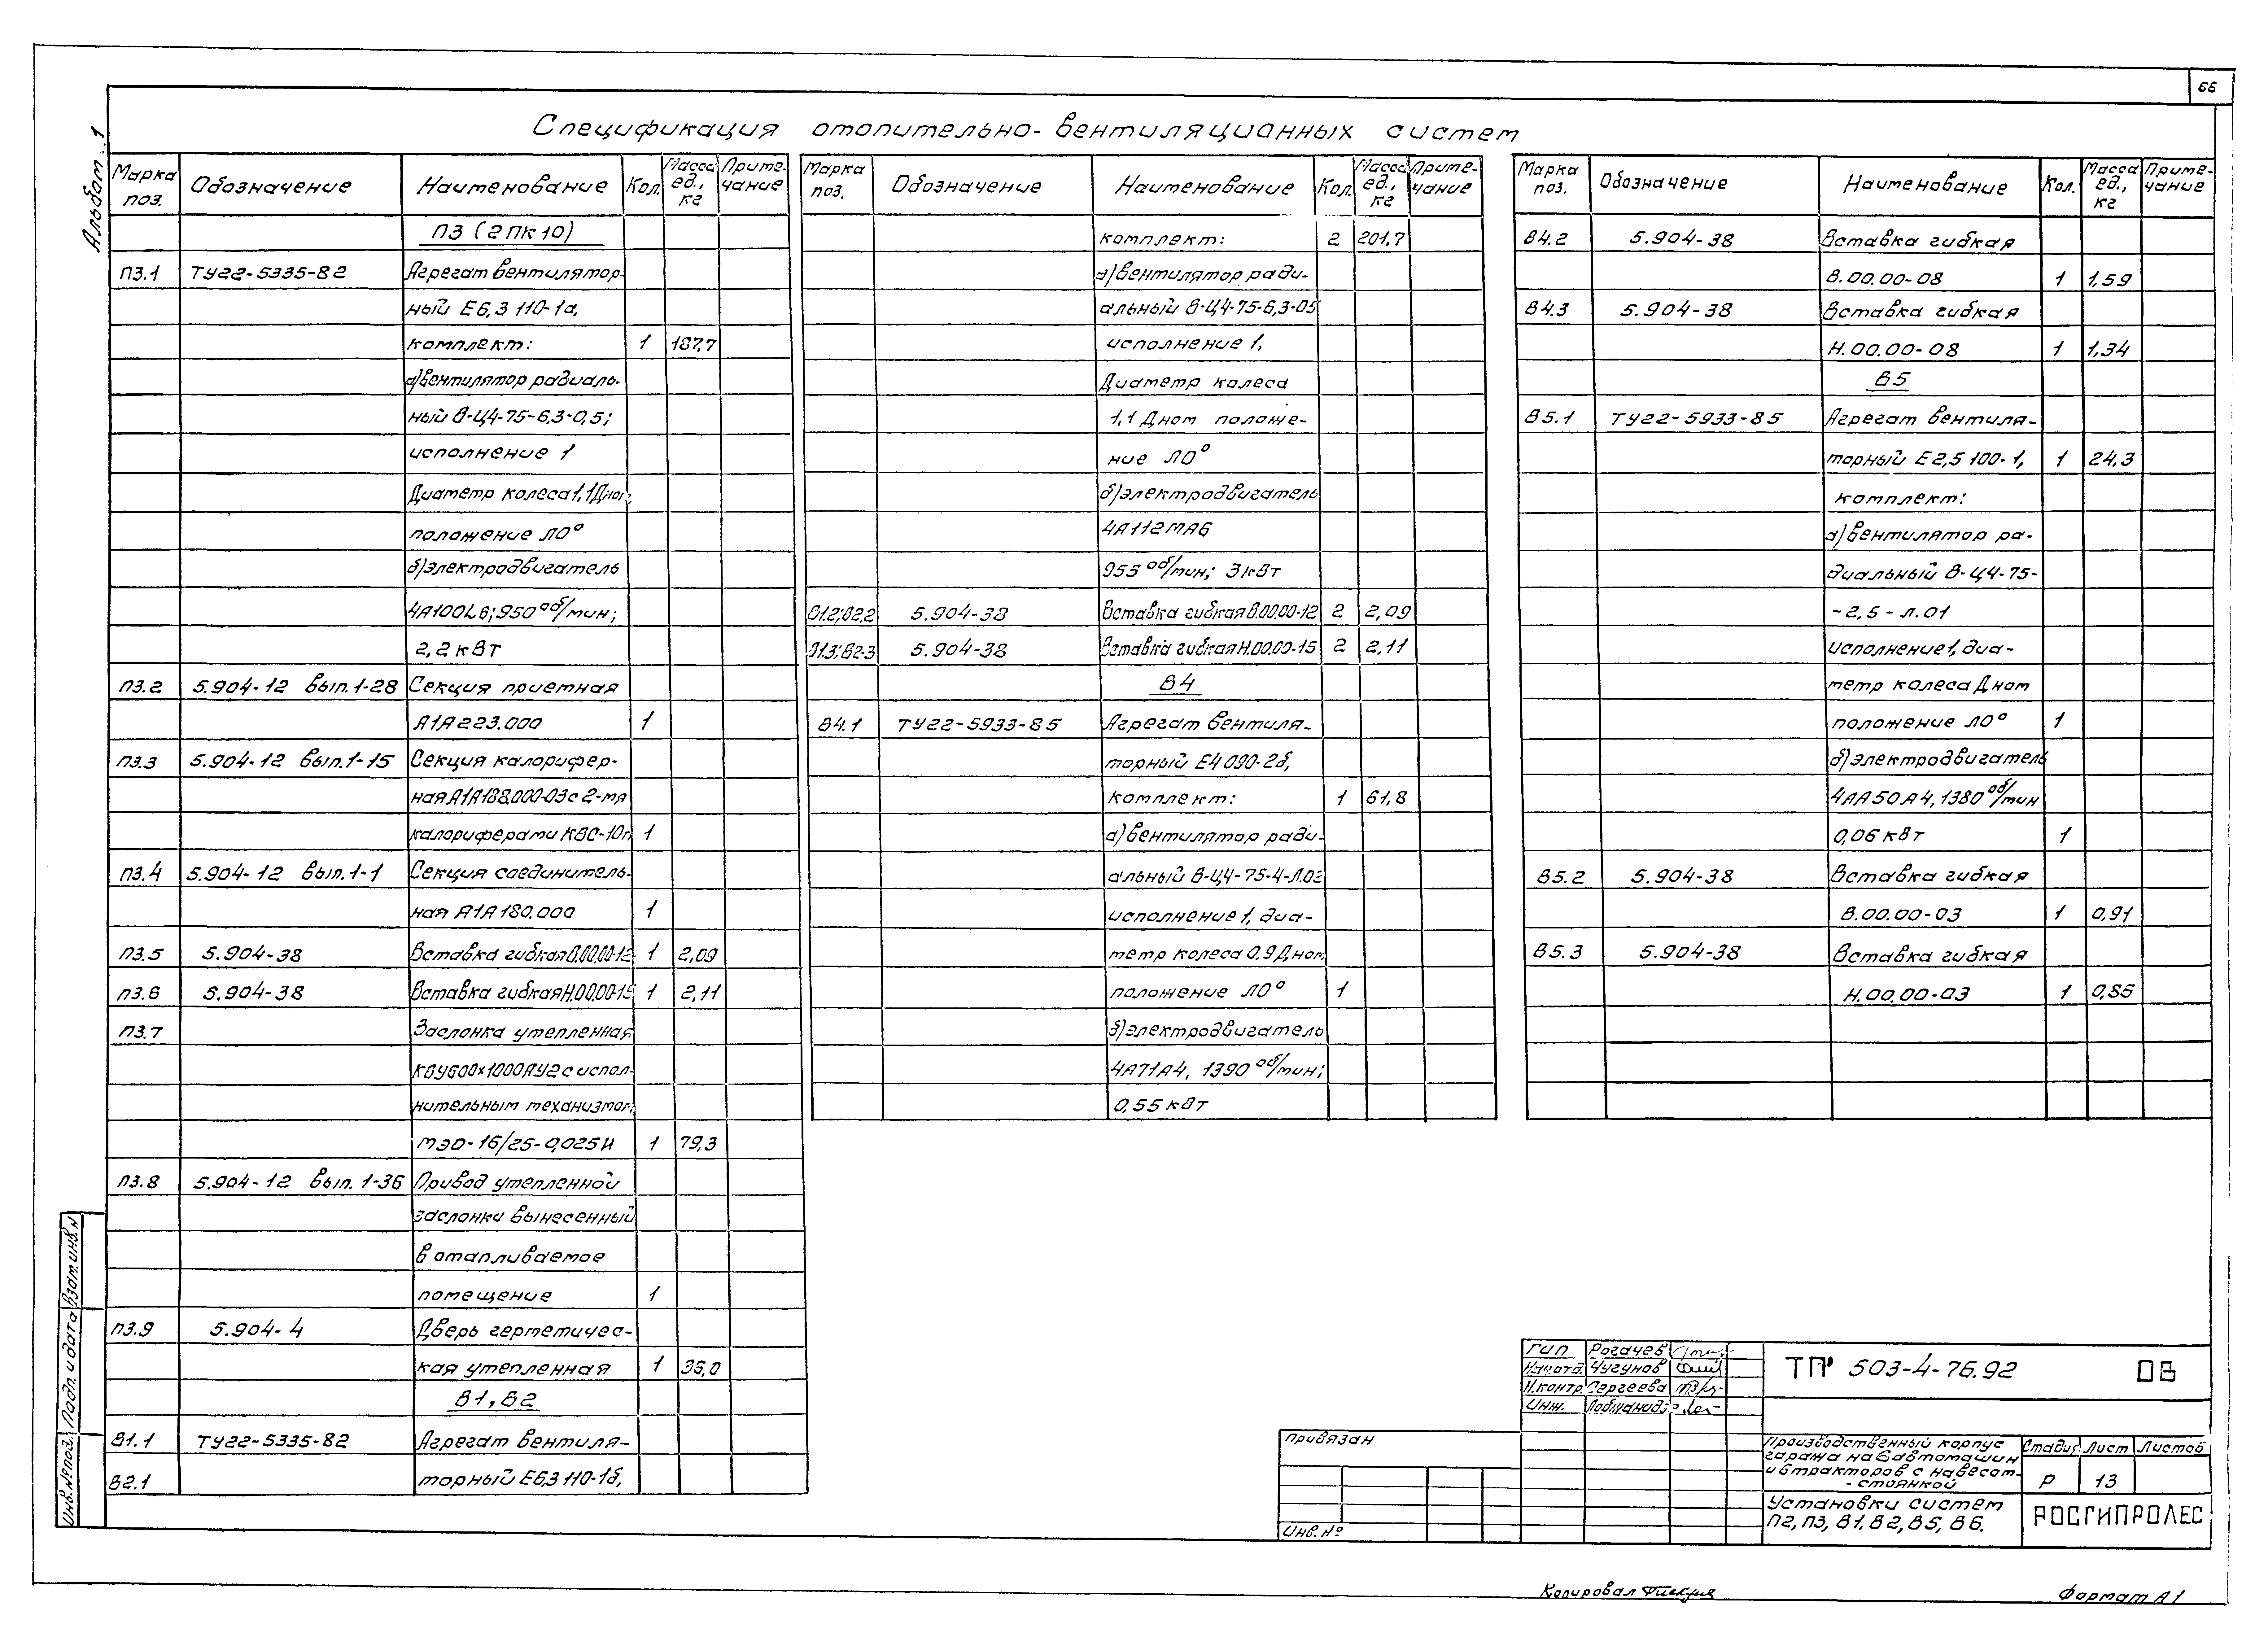 66
Альбом 1
Спецификация отопительно-вентиляционных систем
Марка поз. Обозначение Наименование Кол. Масса ед., кг Приме-чание
П3 (2ПК10)
П3.1 ТУ22-5335-82 Агрегат вентилятор-
ный Е6,3 110-1а,
комплект: 1 187,7
а) вентилятор радиаль-
ный В-Ц4-75-6,3-0,5;
исполнение 1
Диаметр колеса 1,1 Дном,
положение Л0°
б) электродвигатель
4А100L6; 950 об/мин;
2,2 кВт
П3.2 5.904-12 вып.1-28 Секция приемная
А1А223.000 1
П3.3 5.904-12 вып.1-15 Секция калорифер-
ная А1А188.000-03 с 2-мя
калориферами КВС-10п 1
П3.4 5.904-12 вып.1-1 Секция соединитель-
ная А1А180.000 1
П3.5 5.904-38 Вставка гибкая В.00.00-12 1 2,09
П3.6 5.904-38 Вставка гибкая Н.00.00-15 1 2,11
П3.7 Заслонка утепленная
КВУ600х1000АУ2 с испол-
нительным механизмом
МЭО-16/25-0,025И 1 79,3
П3.8 5.904-12 вып.1-36 Привод утепленной
заслонки вынесенный
в отапливаемое
помещение 1
П3.9 5.904-4 Дверь герметичес-
кая утепленная 1 35,0
В1, В2
В1.1 ТУ22-5335-82 Агрегат вентиля-
В2.1 торный Е6,3 110-1б,
Марка поз. Обозначение Наименование Кол. Масса ед., кг Приме-чание
комплект: 2 201,7
а) вентилятор ради-
альный В-Ц4-75-6,3-05
исполнение 1,
Диаметр колеса
1,1 Дном положе-
ние Л0°
б) электродвигатель
4А112МА6
955 об/мин; 3 кВт
В1.2; В2.2 5.904-38 Вставка гибкая В.00.00-12 2 2,09
В1.3; В2.3 5.904-38 Вставка гибкая Н.00.00-15 2 2,11
В4
В4.1 ТУ22-5933-85 Агрегат вентиля-
торный Е4 090-2б,
комплект: 1 61,8
а) вентилятор ради-
альный В-Ц4-75-4-Л.02
исполнение 1, диа-
метр колеса 0,9 Дном,
положение Л0° 1
б) электродвигатель
4А71А4, 1390 об/мин;
0,55 кВт
Марка поз. Обозначение Наименование Кол. Масса ед., кг Приме-чание
В4.2 5.904-38 Вставка гибкая
В.00.00-08 1 1,59
В4.3 5.904-38 Вставка гибкая
Н.00.00-08 1 1,34
В5
В5.1 ТУ22-5933-85 Агрегат вентиля-
торный Е2,5 100-1, 1 24,3
комплект:
а) вентилятор ра-
диальный В-Ц4-75-
-2,5-Л.01
исполнение 1, диа-
метр колеса Дном
положение Л0° 1
б) электродвигатель
4АА50А4, 1380 об/мин
0,06 кВт 1
В5.2 5.904-38 Вставка гибкая
В.00.00-03 1 0,91
В5.3 5.904-38 Вставка гибкая
Н.00.00-03 1 0,85
Инв.№ подл. Подп. и дата Взам.инв.№
Привязан
Инв.№
ГИП Рогачев
Нач.отд. Чугунов
Н.контр. Сергеева
Инж.
ТП 503-4-76.92 ОВ
Производственный корпус
гаража на 6 автомашин
и 6 тракторов с навесом-
-стоянкой
Стадия Лист Листов
Р 13
Установки систем
П2, П3, В1, В2, В5, В6.
РОСГИПРОЛЕС
Копировал
Формат А1